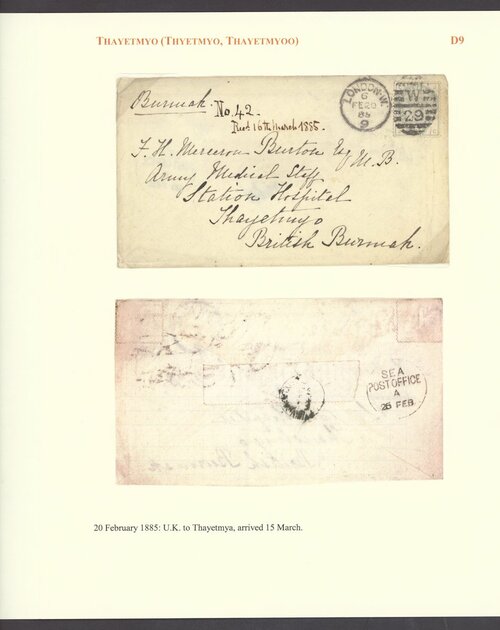 THAYETMYO (THYETMYO, THAYETMYOO)
D9
Burmah.
No. 42.
Recd 16th March 1885.
LONDON·W.
6
FE20
85
9
W
29
F. H. Merceron Burton Esq M.B.
Army Medical Staff
Station Hospital
Thayetmyo
British Burmah.
SEA
POST OFFICE
A
26 FEB
20 February 1885: U.K. to Thayetmya, arrived 15 March.